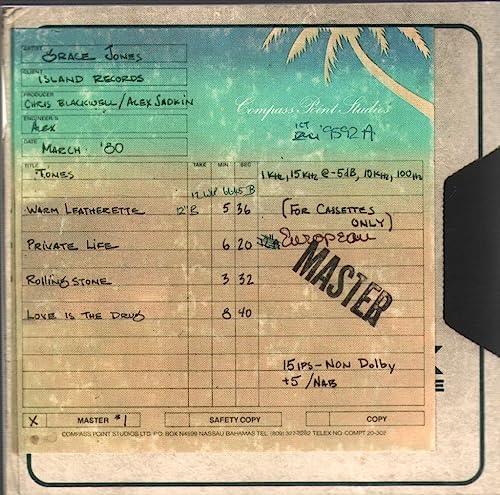 ARTIST GRACE JONES
CLIENT ISLAND RECORDS
PRODUCER CHRIS BLACKWELL/ALEX SADKIN
ENGINEER/S ALEX
DATE MARCH '80
Compass Point Studios
ICT 9592A
TITLE TAKE MIN SEC
TONES 1KHz, 15KHz @-5dB, 10KHz, 100Hz
12" B
WARM LEATHERETTE 5 36 (FOR CASSETTES ONLY)
PRIVATE LIFE 6 20 European
ROLLING STONE 3 32 MASTER
LOVE IS THE DRUG 8 40
15IPS-NON Dolby
+5/NAB
X MASTER #1 SAFETY COPY COPY
COMPASS POINT STUDIOS LTD. P.O. BOX N4599 NASSAU BAHAMAS TEL. (809) 327-8282 TELEX NO-COMPT 20-302